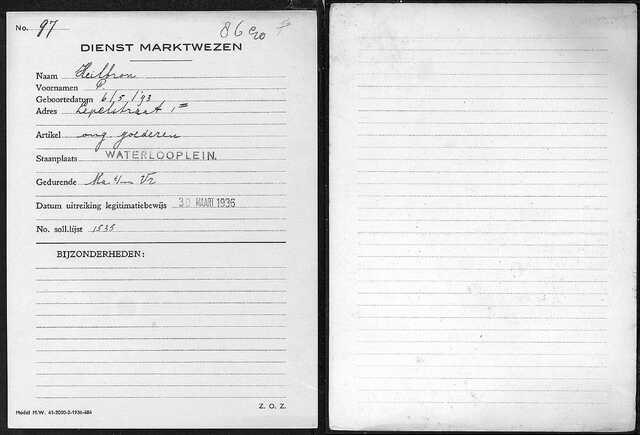 No. 97
86
DIENST MARKTWEZEN
Naam Heilbron
Voornamen
Geboortedatum 6/5/'93
Adres Lepelstraat
Artikel ong. goederen
Staanplaats WATERLOOPLEIN.
Gedurende Ma t/m Vr
Datum uitreiking legitimatiebewijs 30 MAART 1936
No. soll.lijst 1535
BIJZONDERHEDEN:
Model M.W. 41-2000-2-1936-684
Z. O. Z.